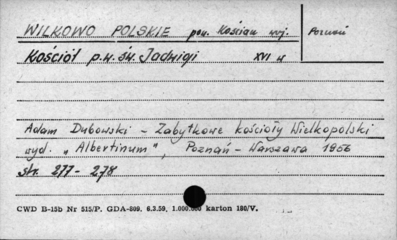 WILKOWO POLSKIE pow. Kościan woj. Poznań
Kościół p.w. św. Jadwigi XVI w
Adam Dubowski - Zabytkowe kościoły Wielkopolski
wyd. „Albertinum", Poznań - Warszawa 1956
str. 277 - 278
CWD B-15b Nr 515/P. GDA-809, 6.3.59, 1.000.000 karton 180/V.